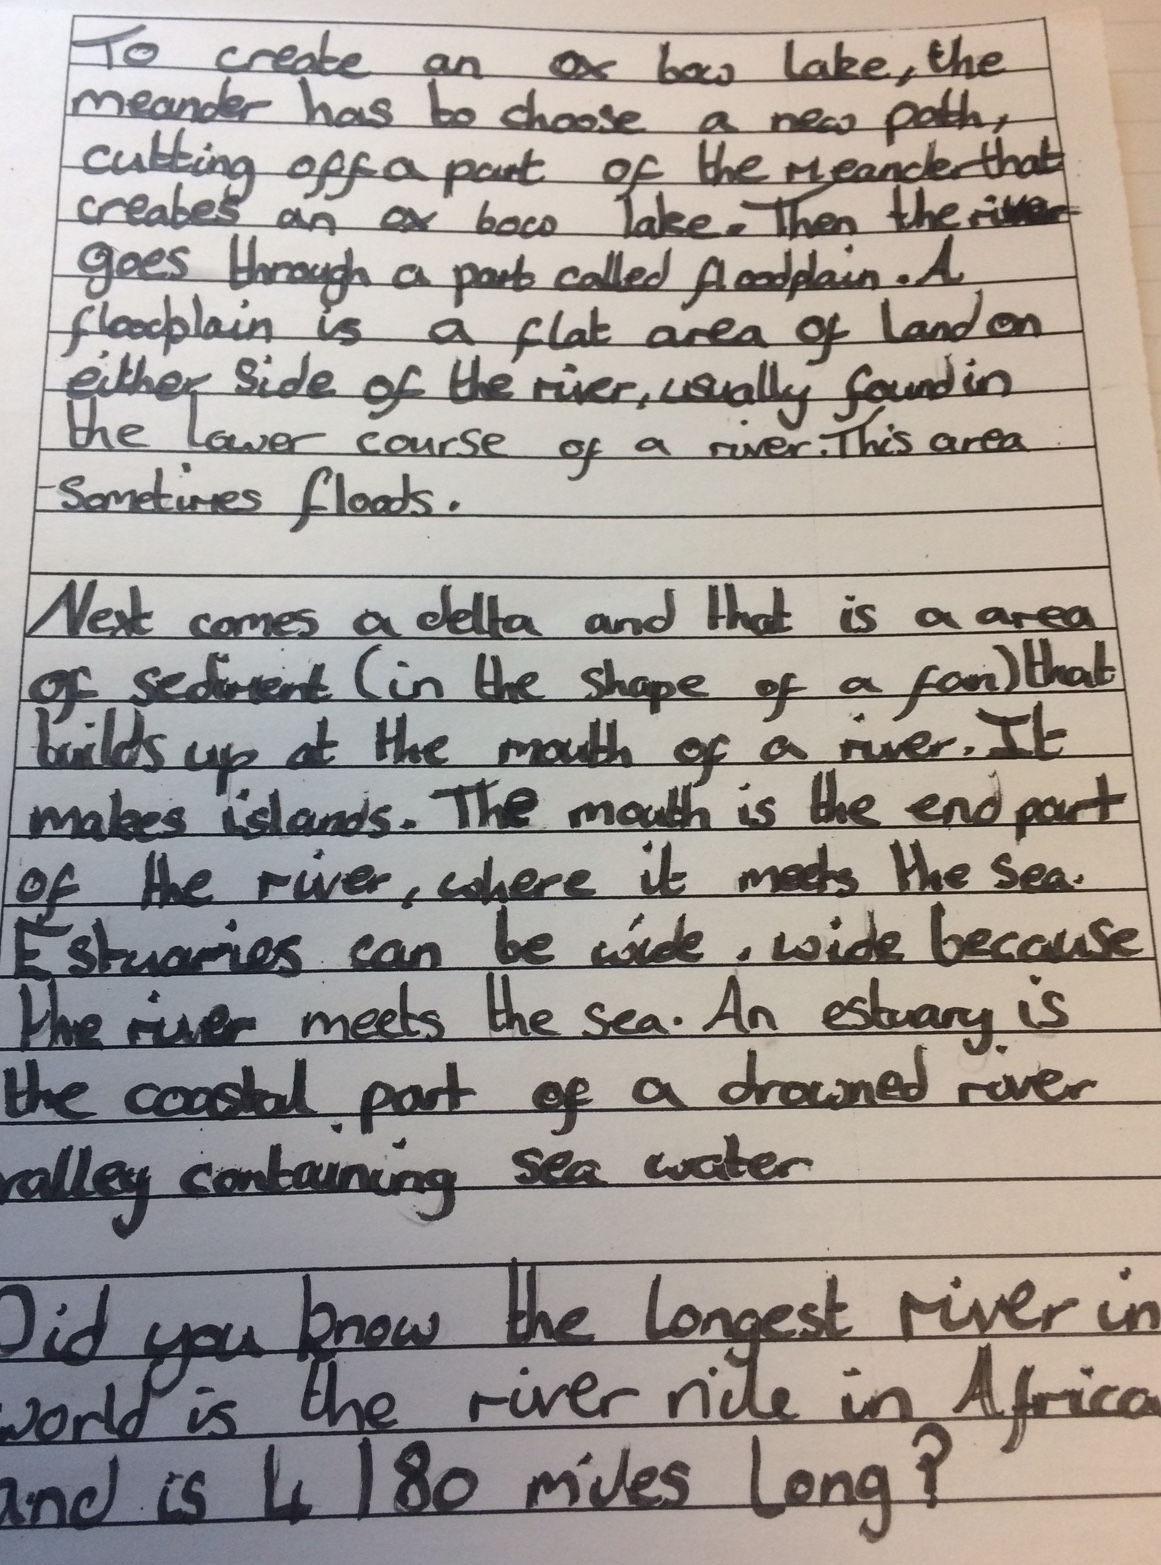 To create an ox bow lake, the
meander has to choose a new path,
cutting off a part of the meander that
creates an ox bow lake. Then the river
goes through a part called floodplain. A
floodplain is a flat area of land on
either side of the river, usually found in
the lower course of a river. This area
sometimes floods.
Next comes a delta and that is a area
of sediment (in the shape of a fan) that
builds up at the mouth of a river. It
makes islands. The mouth is the end part
of the river, where it meets the sea.
Estuaries can be wide, wide because
the river meets the sea. An estuary is
the coastal part of a drowned river
valley containing sea water
Did you know the longest river in
world is the river nile in Africa
and is 4 180 miles long?